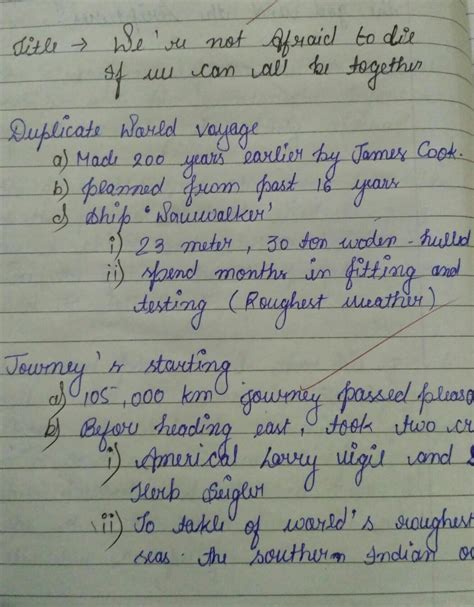 Title → We're not Afraid to die
If we can all be together
Duplicate World voyage
a) Made 200 years earlier by James Cook.
b) planned from past 16 years
c) Ship 'Wavwalker'
i) 23 meter, 30 ton woden-hulled
ii) spend months in fitting and
testing (Roughest weather)
Journey's starting
a) 105,000 km journey passed pleasa
b) Before heading east, took two cr
i) Americal Larry vigil and S
Herb Seigler
ii) To takle of world's roughest
seas. the southern Indian oc